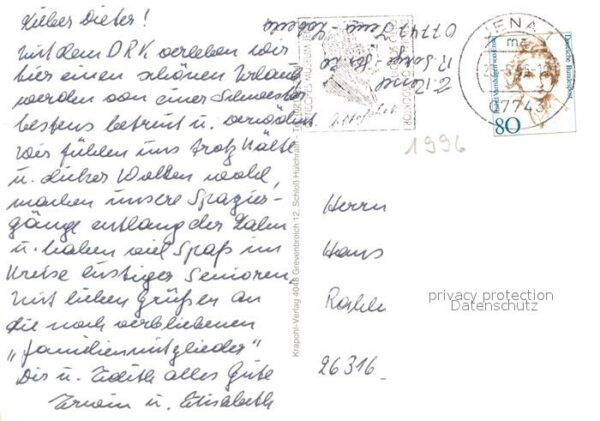 Lieber Dieter!
Mit dem DRK verleben wir
hier einen schönen Urlaub,
werden von einer Schwester
bestens betreut u. verwöhnt.
Wir fühlen uns trotz Kälte
u. dicker Wolken wohl,
machen unsere Spazier-
gänge entlang der Lahn
u. haben viel Spaß im
Kreise lustiger Senioren.
Mit lieben Grüßen an
die noch verbliebenen
"Familienmitglieder"
Dir u. Edith alles Gute
Erwin u. Elisabeth
Krapohl-Verlag 4048 Grevenbroich 12, Schloß Hülchrath
07747 Jena-Lobeda
JENA 1
07743
Deutsche Bundespost
80
1996
Herrn
Hans
26316
privacy protection
Datenschutz